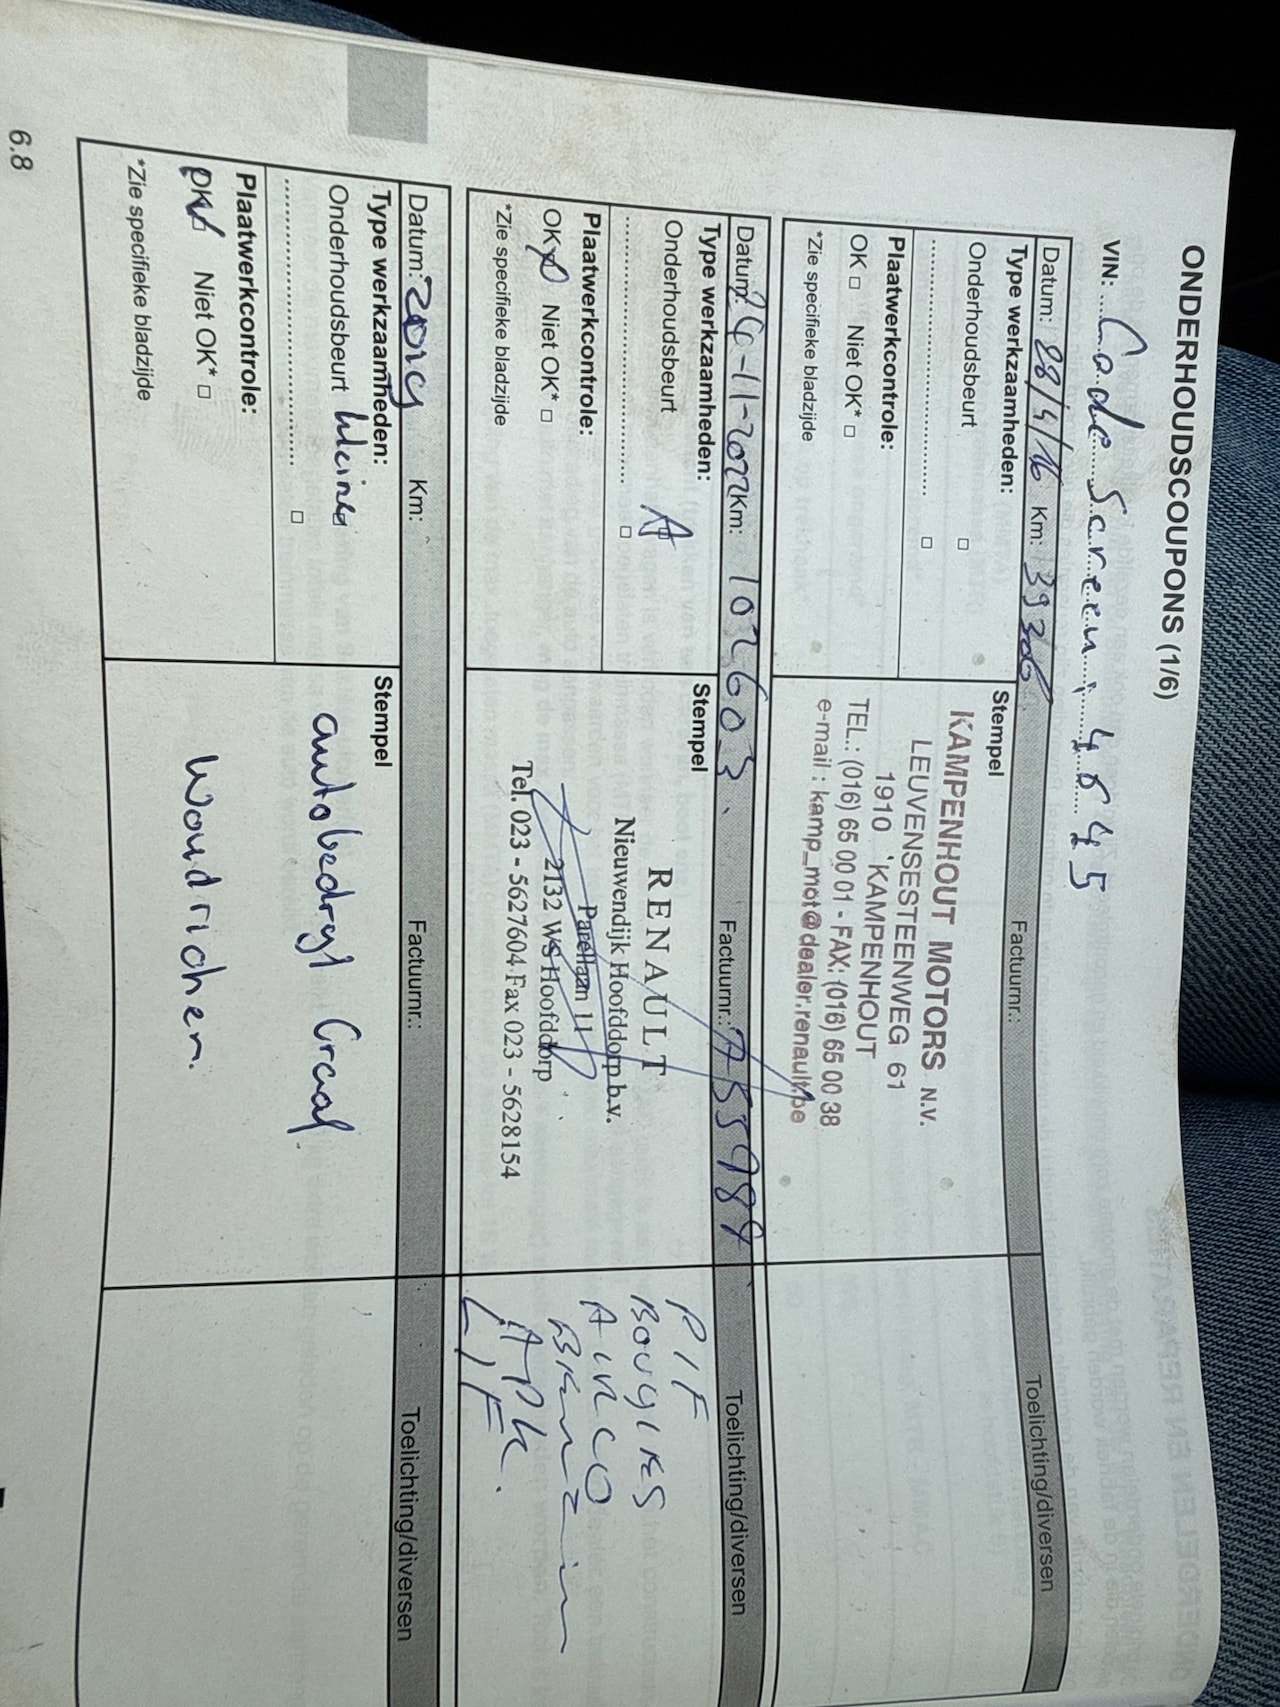 ONDERHOUDSCOUPONS (1/6)
VIN: Code Screen: 4645
Datum: 28/4/16 Km: 39306 Factuurnr.: Toelichting/diversen
Type werkzaamheden:
Onderhoudsbeurt □
.............................. □
Plaatwerkcontrole:
OK □ Niet OK* □
*Zie specifieke bladzijde
Stempel
KAMPENHOUT MOTORS N.V.
LEUVENSESTEENWEG 61
1910 KAMPENHOUT
TEL.: (016) 65 00 01 - FAX: (016) 65 00 38
e-mail : kamp_mot@dealer.renault.be
Datum: 24-11-2022 Km: 102603. Factuurnr.: Toelichting/diversen
Type werkzaamheden:
Onderhoudsbeurt A
.............................. □
Plaatwerkcontrole:
OK Niet OK* □
*Zie specifieke bladzijde
Stempel
RENAULT
Nieuwendijk Hoofddorp b.v.
Parellaan 11
2132 WS Hoofddorp
Tel. 023 - 5627604 Fax 023 - 5628154
PIF
BOUGIES
AIRCO
APK.
LIF
Datum: Km: Factuurnr.: Toelichting/diversen
Type werkzaamheden:
Onderhoudsbeurt kleine
.............................. □
Plaatwerkcontrole:
OK Niet OK* □
*Zie specifieke bladzijde
Stempel
autobedryf Graaf
Woudrichem.
6.8